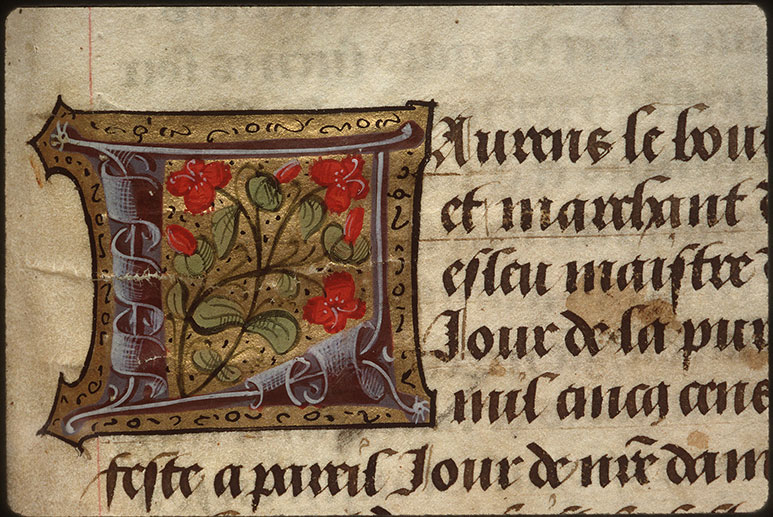 Laurens le bou
et marchant d
esleu maistre d
Jour de la pur
mil cincq cens
feste a pareil Jour de nre dam